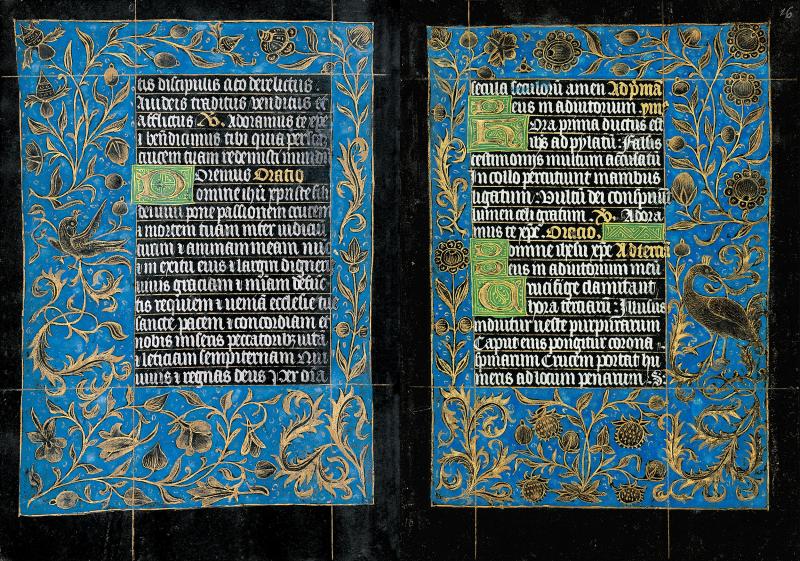 cis discipulis a to derelictus.
A iudeis traditus venditus et
afflictus V. Adoramus te xpe
i bendicimus tibi quia per scan
crucem tuam redemisti mundu
Oremus Oratio
Domine ihu xpriste fili
dei uiui pone passionem crucem
i mortem tuam inter iudiciu
tuum i animam meam nuc
i in exitu eius i largiri digneris
uiuis graciam i miam defuc
tis requiem i uenia ecclesie tue
sancte pacem i concordiam et
nobis miseris peccatoribz uita
i leticiam sempiternam Qui
uiuis i regnas deus Per oia
16
secula seculoru amen Ad pma
Deus in adiutorium ymº
Hora prima ductus est
ihs ad pylatu: Falsis
testimonys multum accusatu
In collo percutiunt manibus
ligatum: Vultu dei conspuut
lumen celi gratum. V. Adora
mus te xpe. Oracio.
Domine ihesu xpe Ad tercia
Deus in adiutorium meu
Crucifige clamitant
hora terciaru: Illusus
induitur ueste purpurarum
Caput eius pongitur corona
spinarum Crucem portat hu
meris ad locum penarum. S.